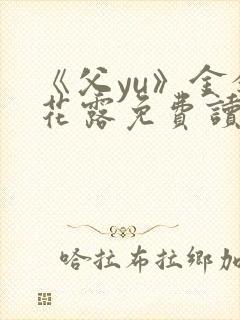 《父yu》金銀
花露免費讀
哈拉布拉鄉加